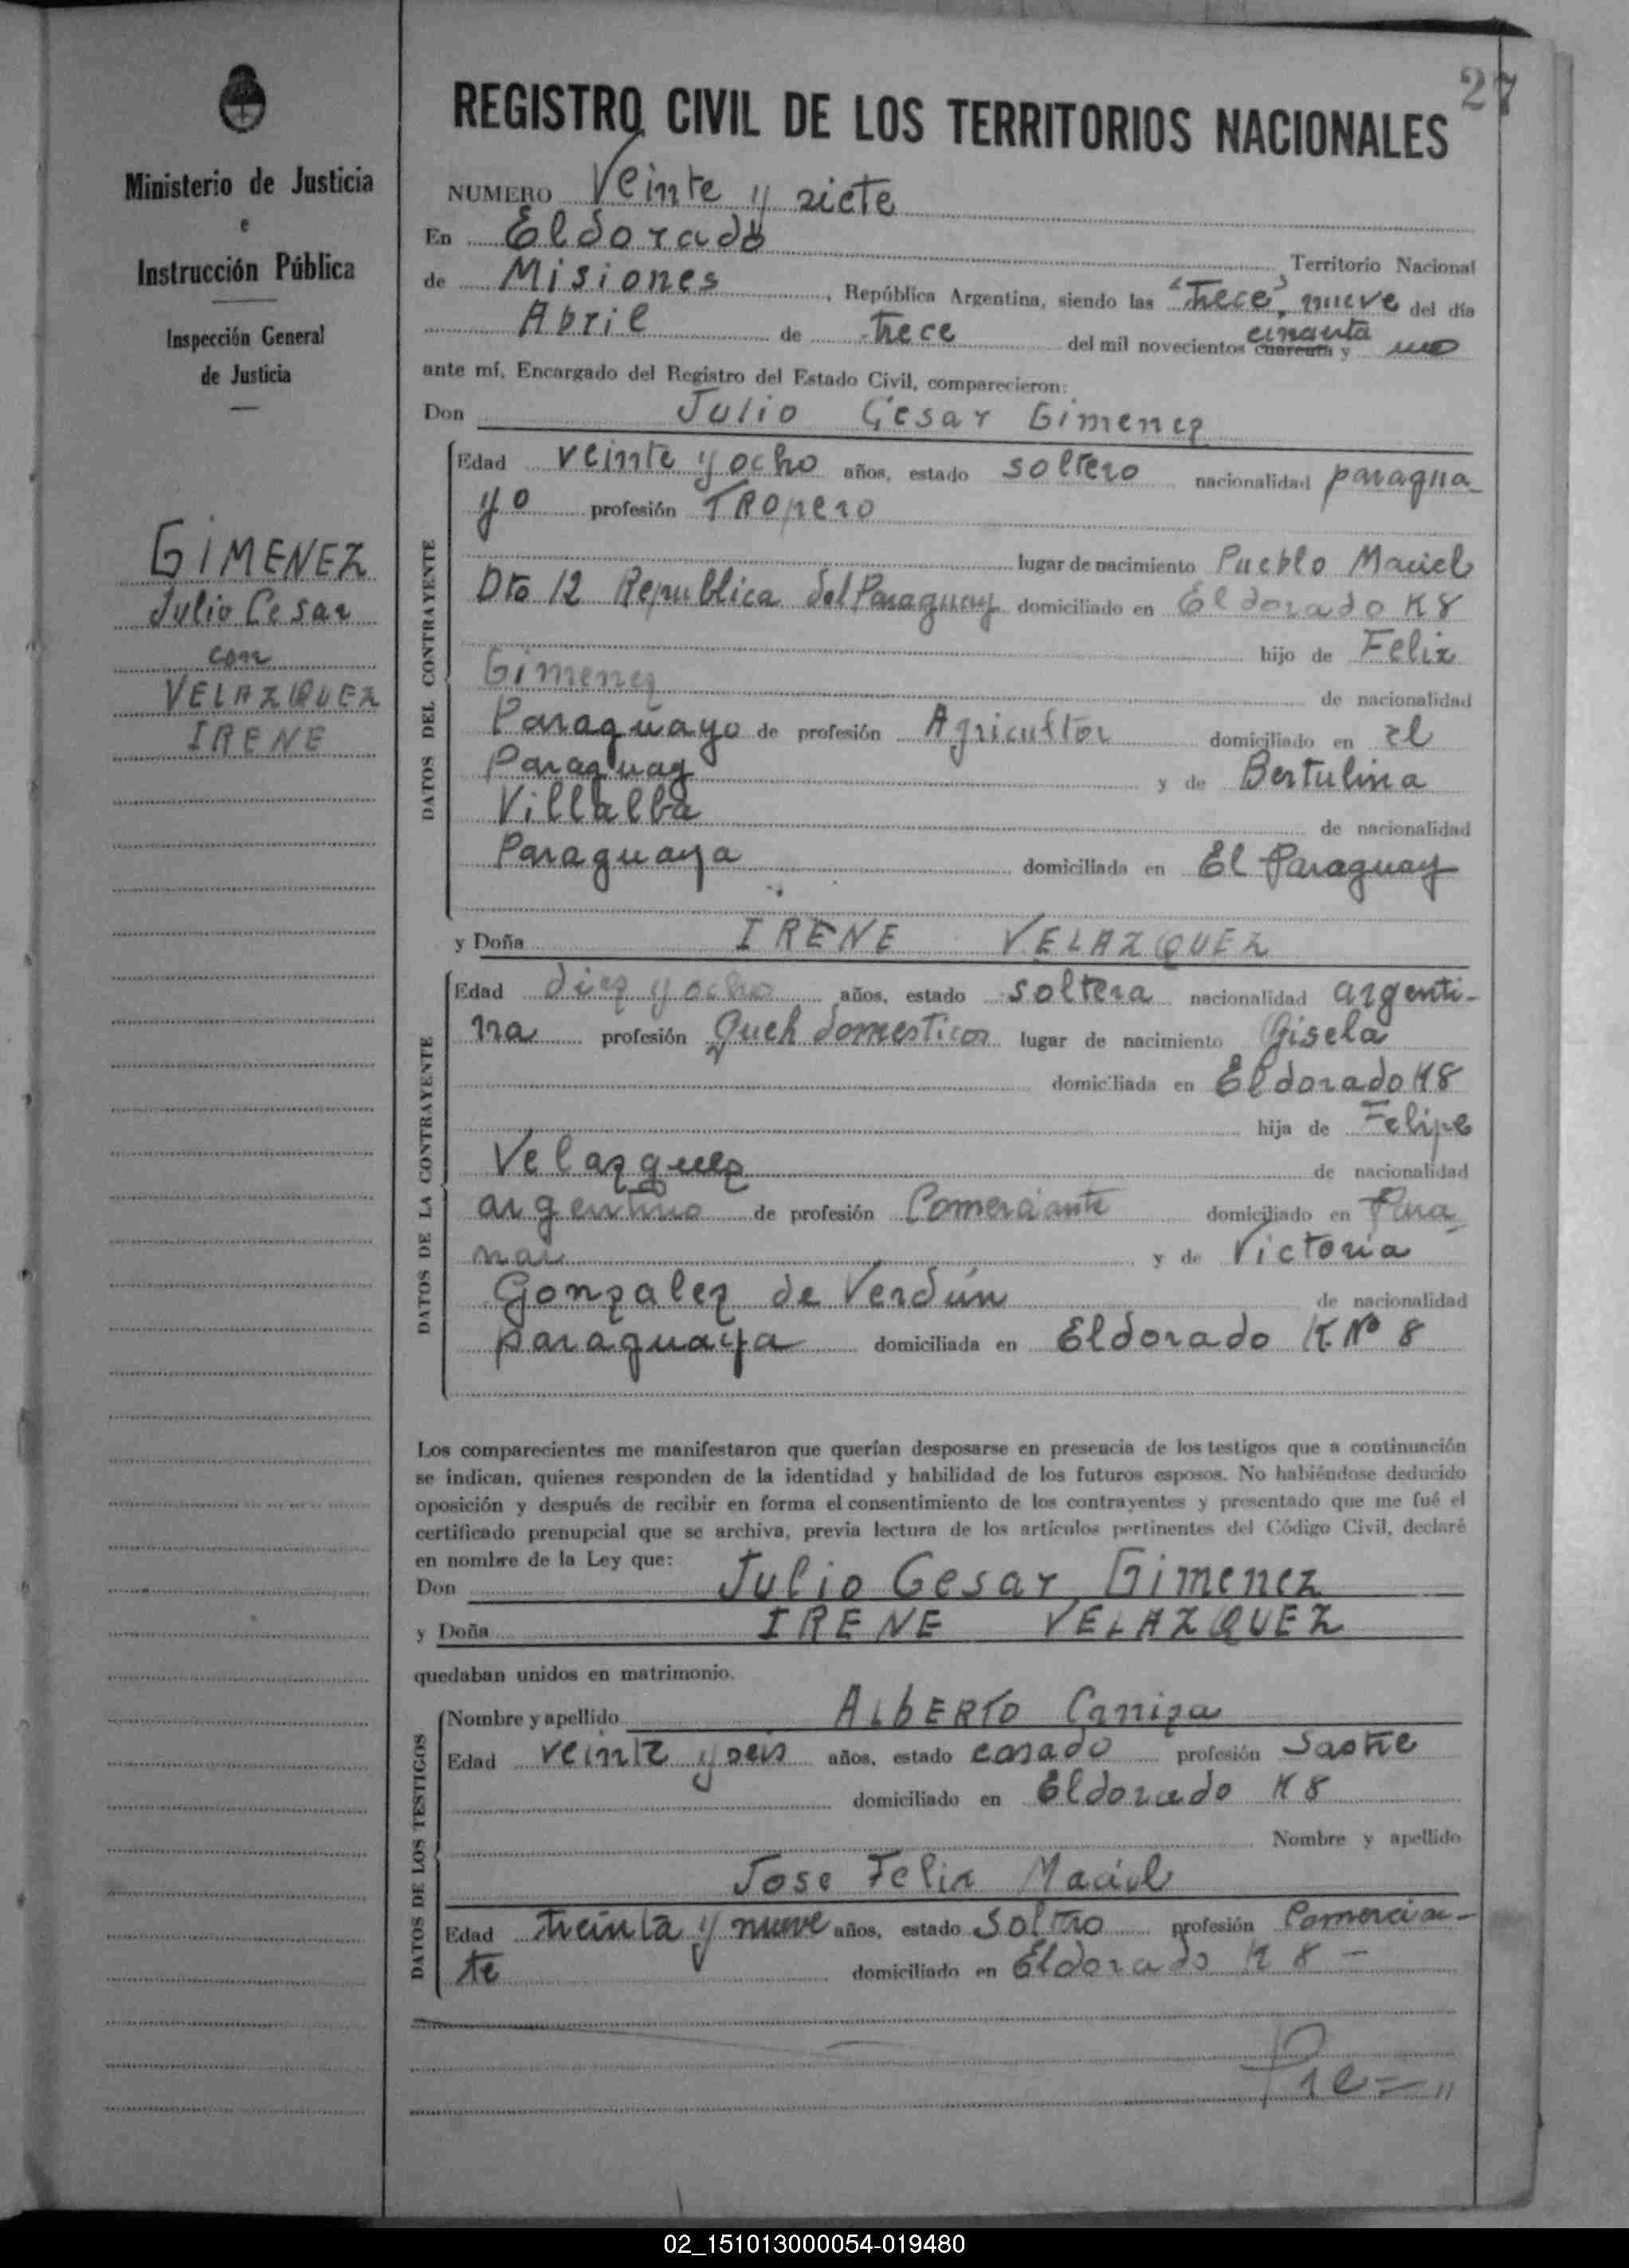 27
Ministerio de Justicia
e
Instrucción Pública
Inspección General
de Justicia
GIMENEZ
Julio Cesar
con
VELAZQUEZ
IRENE
REGISTRO CIVIL DE LOS TERRITORIOS NACIONALES
NUMERO Veinte y siete
En Eldorado Territorio Nacional
de Misiones, República Argentina, siendo las "Trece" nueve del día
Abril de trece del mil novecientos cuarenta cincuenta y uno
ante mí, Encargado del Registro del Estado Civil, comparecieron:
Don Julio Cesar Gimenez
DATOS DEL CONTRAYENTE
Edad veinte y ocho años, estado soltero nacionalidad paragua
yo profesión TRopero
lugar de nacimiento Pueblo Maciel
Dto 12 Republica del Paraguay domiciliado en Eldorado K8
hijo de Felix
Gimenez de nacionalidad
Paraguayo de profesión Agricultor domiciliado en el
Paraguay y de Bertulina
Villalba de nacionalidad
Paraguaya domiciliada en El Paraguay
y Doña IRENE VELAZQUEZ
DATOS DE LA CONTRAYENTE
Edad diez y ocho años, estado soltera nacionalidad argenti-
na profesión Queh domesticos lugar de nacimiento Gisela
domiciliada en Eldorado K8
hija de Felipe
Velazquez de nacionalidad
argentino de profesión Comerciante domiciliado en Para
nai y de Victoria
Gonzalez de Verdún de nacionalidad
paraguaya domiciliada en Eldorado K. Nº 8
Los comparecientes me manifestaron que querían desposarse en presencia de los testigos que a continuación
se indican, quienes responden de la identidad y habilidad de los futuros esposos. No habiéndose deducido
oposición y después de recibir en forma el consentimiento de los contrayentes y presentado que me fué el
certificado prenupcial que se archiva, previa lectura de los artículos pertinentes del Código Civil, declaré
en nombre de la Ley que:
Don Julio Cesar Gimenez
y Doña IRENE VELAZQUEZ
quedaban unidos en matrimonio.
DATOS DE LOS TESTIGOS
Nombre y apellido ALbERTO Caniza
Edad veinte y seis años, estado casado profesión Sastre
domiciliado en Eldorado K 8
Nombre y apellido
Jose Felix Maciel
Edad treinta y nueve años, estado Soltero profesión Comercian-
te domiciliado en Eldorado K 8 -
02_151013000054-019480